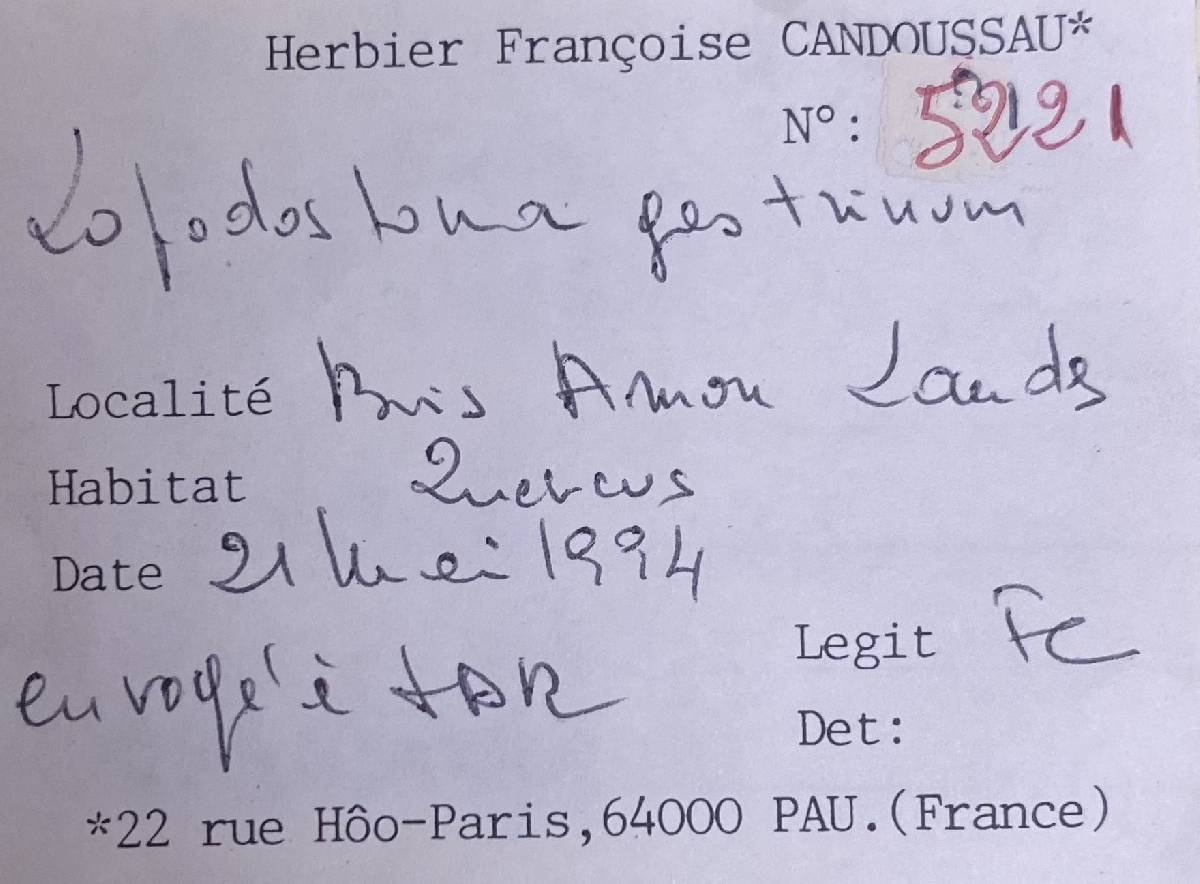 Herbier Françoise CANDOUSSAU*
N°: 5221
Lopodostoma gastrinum
Localité Bois Amou Landes
Habitat Quercus
Date 21 Mai 1994
Legit FC
envoyé à
Det:
*22 rue Hôo-Paris,64000 PAU.(France)